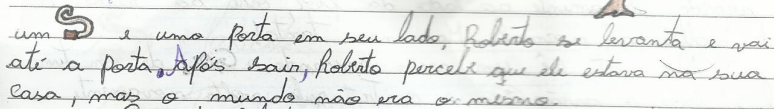 um S e uma porta em seu lado, Roberto se levanta e vai
até a porta, Após sair, Roberto percebe que ele estava na sua
casa, mas o mundo não era o mesmo.